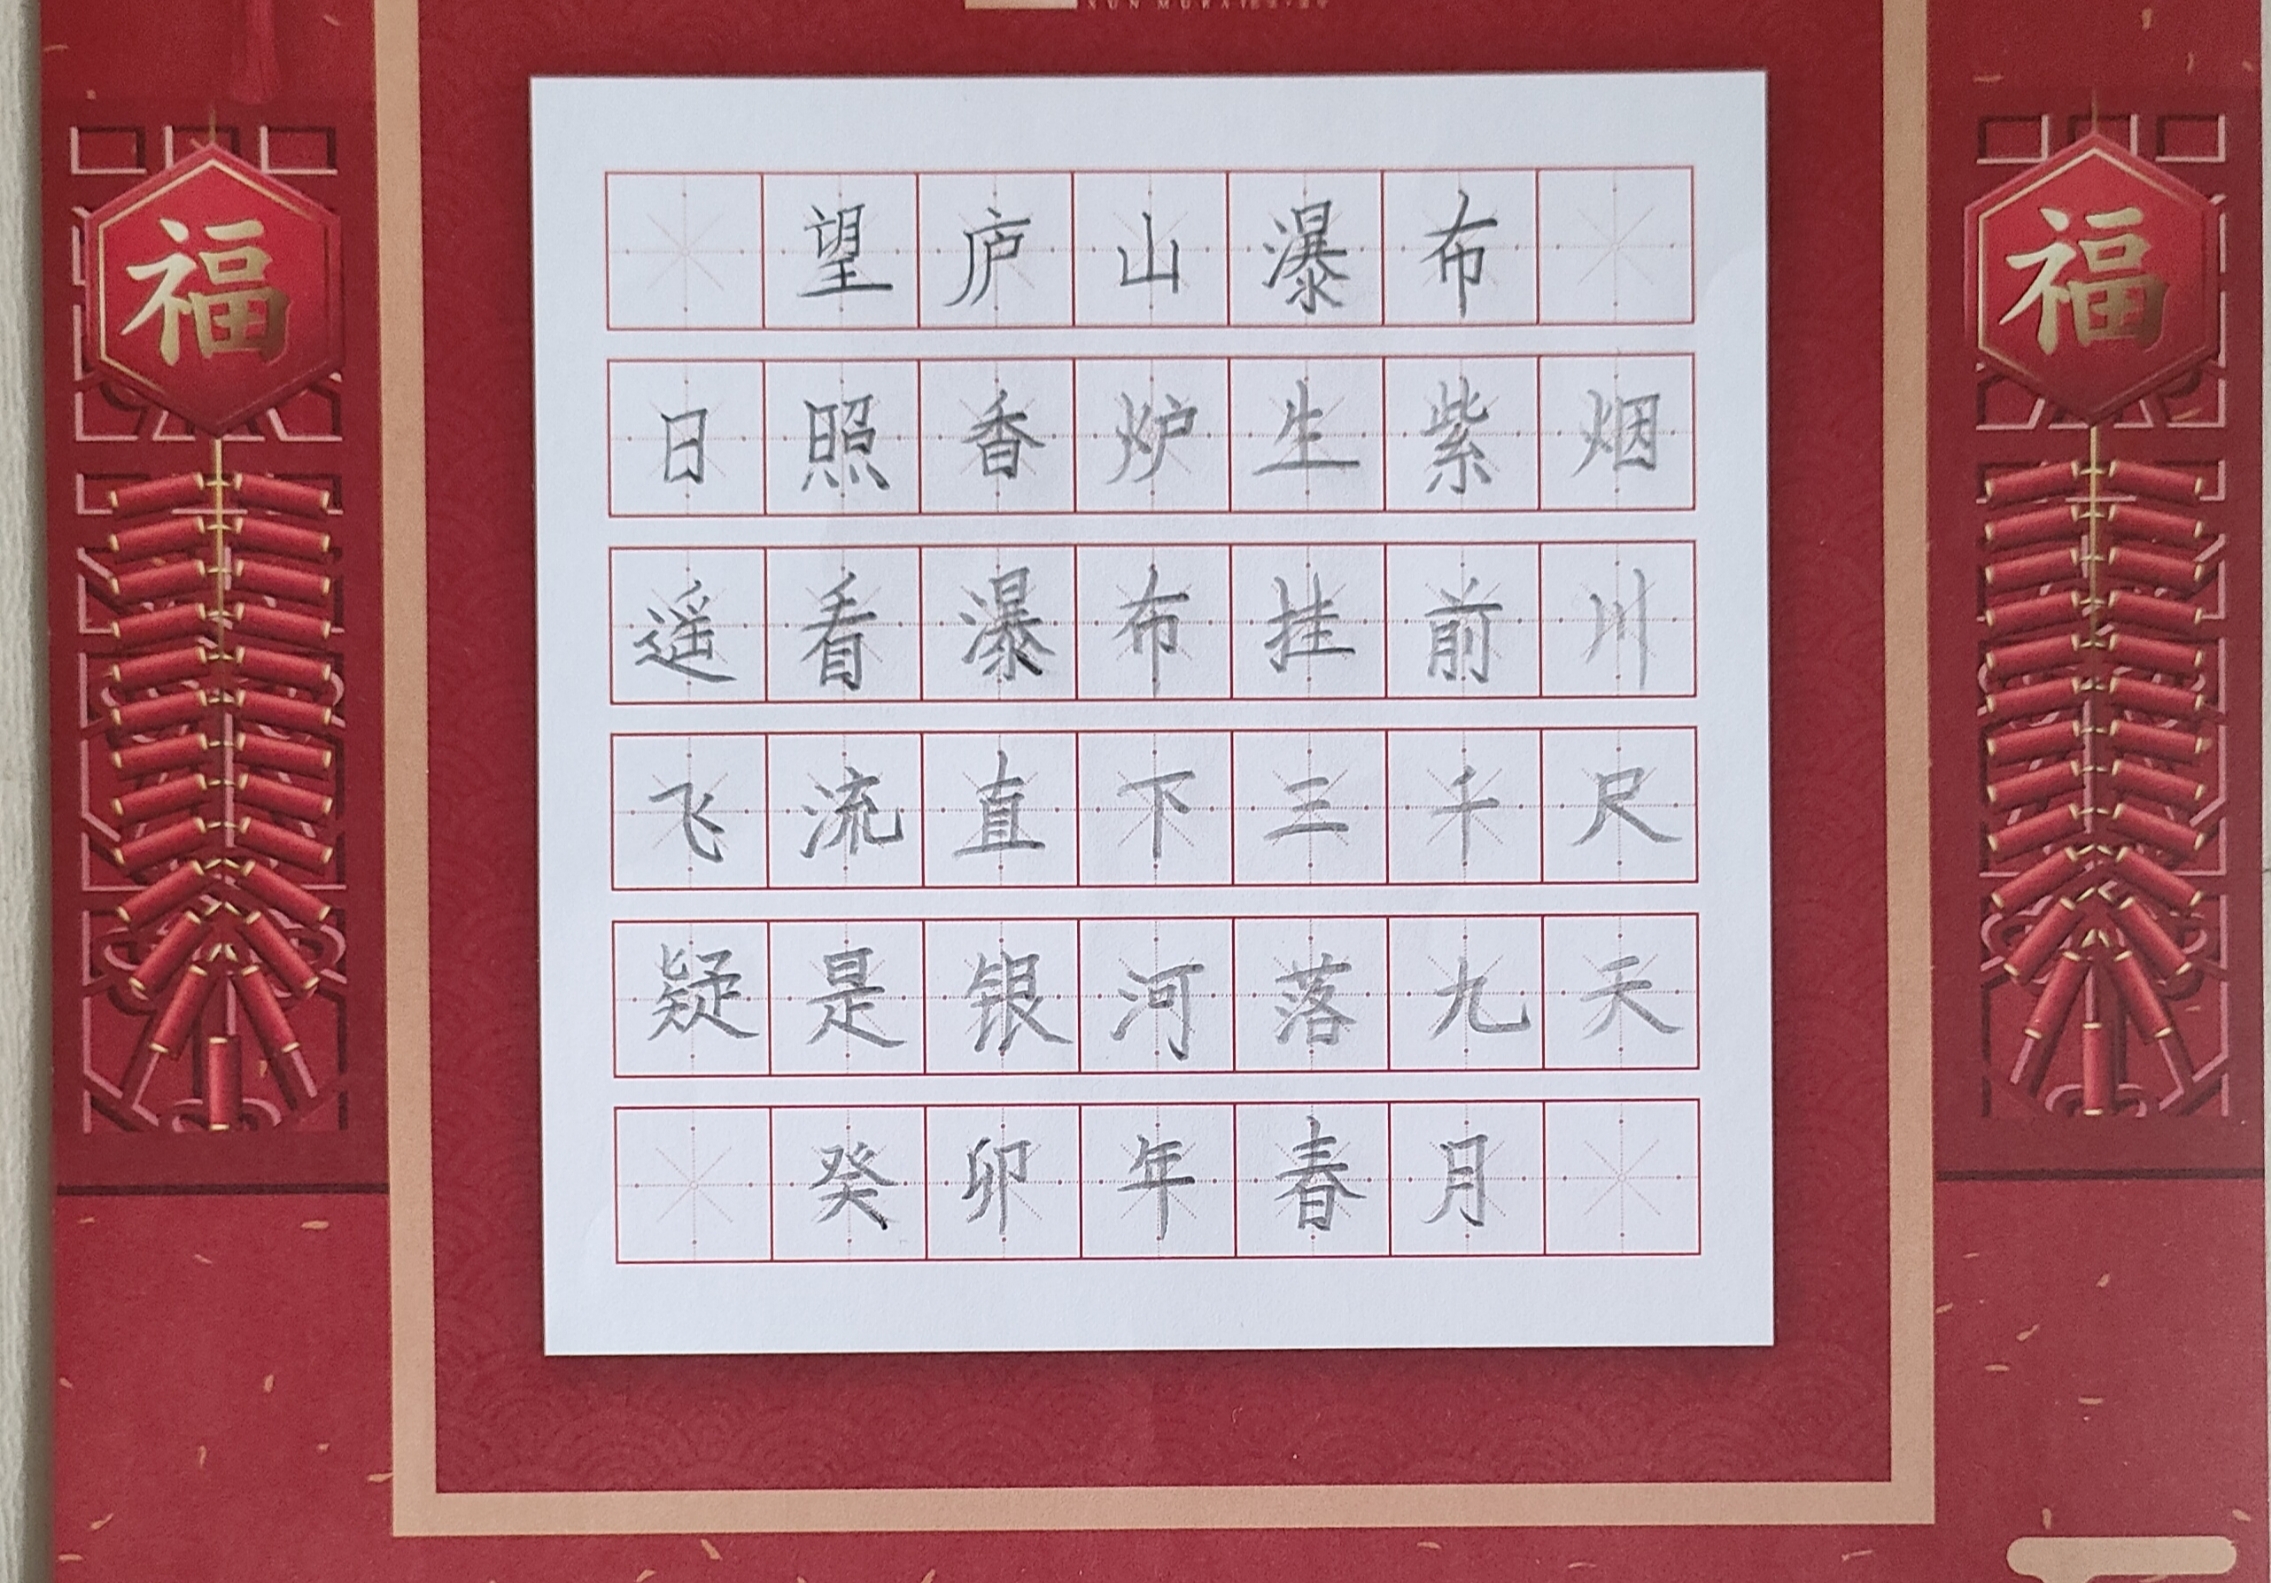 望庐山瀑布
日照香炉生紫烟
遥看瀑布挂前川
飞流直下三千尺
疑是银河落九天
癸卯年春月
福
福